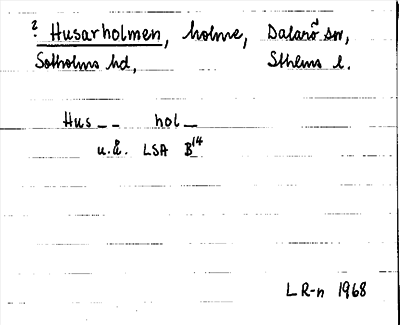 ? Husarholmen, holme, Dalarö sn,
Sotholms hd, Sthlms l.
Hus_ _ hol_
u.å. LSA B14
L R-n 1968